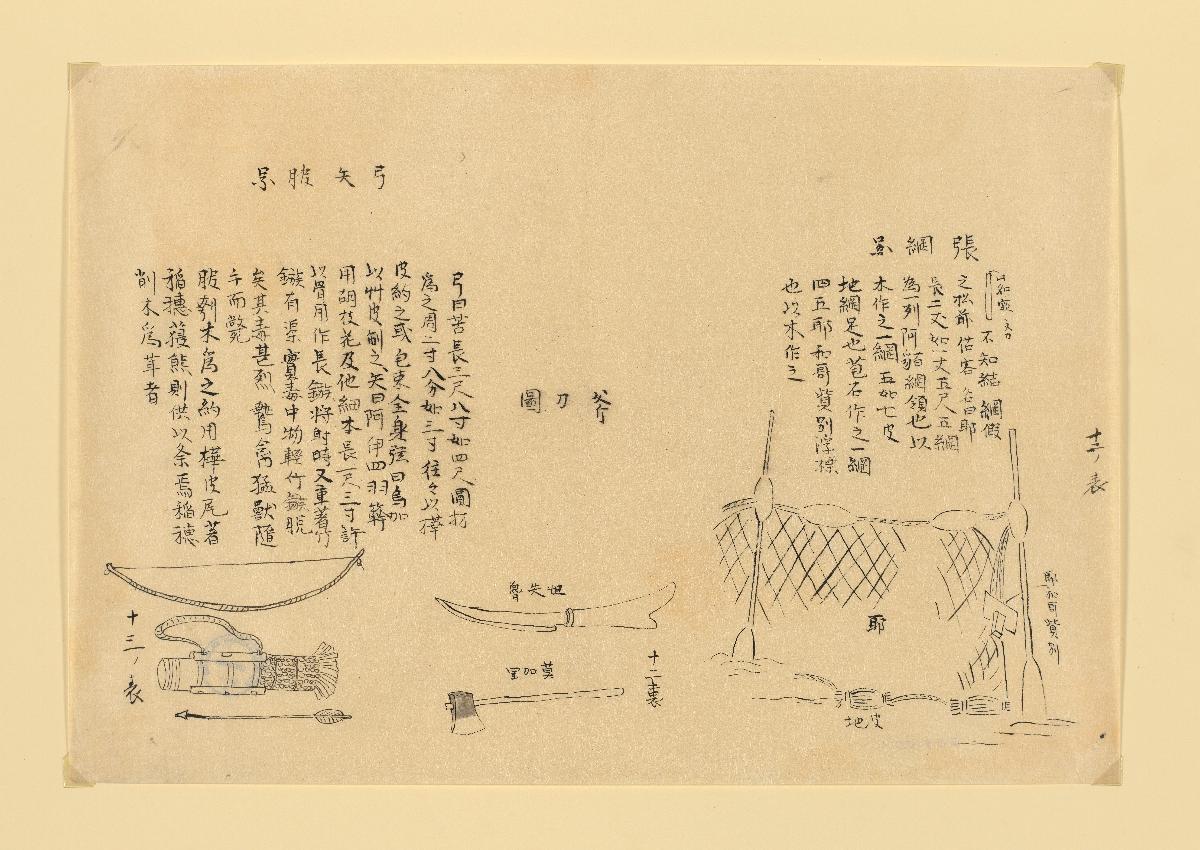 張網圖
不知結網假
之松前估客名曰耶
長二丈如一丈五尺五綱
為一列阿貓綱領也以
木作之一綱五如七皮
地綱足也苞石作之一綱
四五耶和哥賛別浮標
也以木作之
十二ノ表
耶和哥賛別
耶
皮地
斧刀圖
坦失魯
莫加里
十二ノ裏
弓矢服圖
弓曰苦長三尺八寸如四尺圓材
為之周二寸八分如三寸往々以樺
皮約之或包束全身弦曰烏加
以艸皮制之矢曰阿伊四羽簳
用胡枝花及他細木長一尺三寸許
以骨角作長鏃將射時又重著竹
鏃有渠實毒中物輕竹鏃脱
矣其毒甚烈鷙禽猛獸隨
手而斃
服刳木為之約用樺皮尻著
稲穗獲熊則供以祭焉稲穗
削木為茸者
十三ノ表